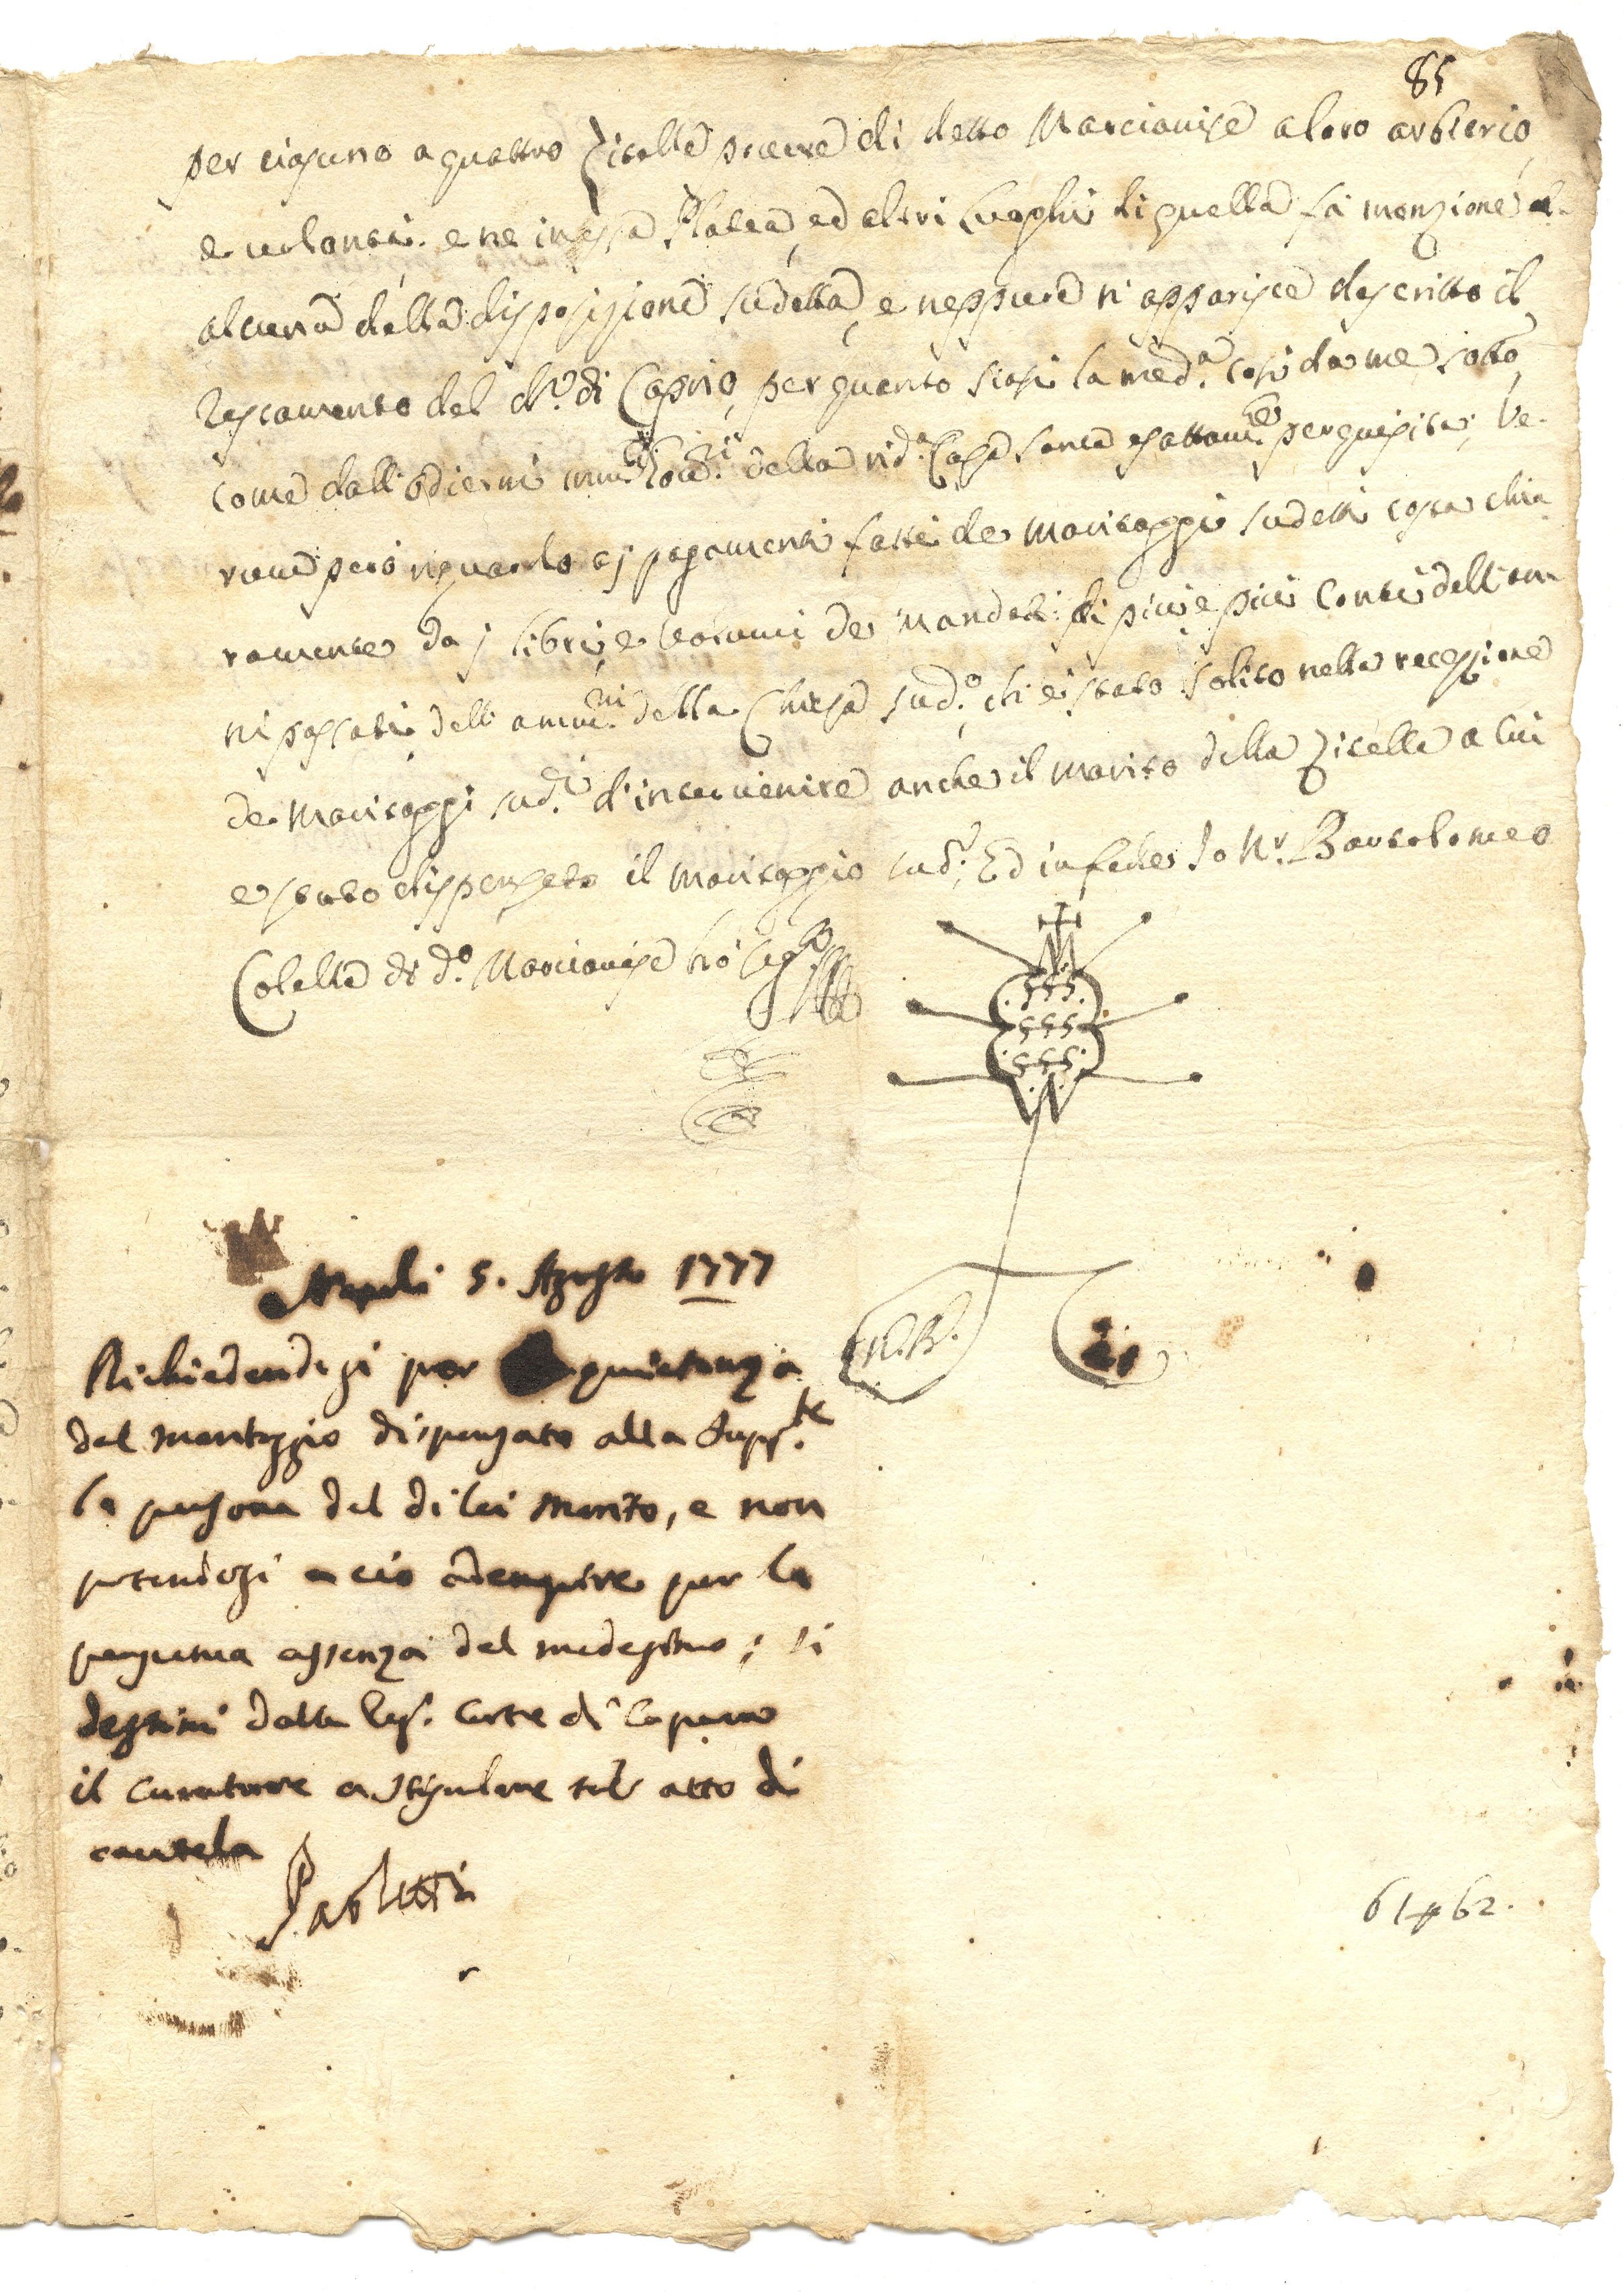 85
per ciascuno a quattro Zitelle povere di detto Marcianise a loro arbitrio,
e volontà. e ne in essa Platea, ed altri luoghi di quella fà menzione al-
alcuna della disposizione sudetta, e neppure vi apparisce descritto il
Testamento del di Caprio, per quanto siasi la med.a così da me sotto,
come dall'odierni della rid.a Casa Santa esattam.te perquisita; Ve-
ram però riguardo aj pagamenti fatti de maritaggi sudetti costa chia
ramente daj libri, e volumi de mandati di più, e più Conti dell'an-
ni passati dell'amm.ni della Chiesa sud.a, ch'è stato solito nella recezzione
de maritaggi sud.i d'intervenire anche il marito della Zitella a cui
è stato dispensato il maritaggio sud.o; Ed in fede Io N.r Bartolomeo
Coletta di d.o Marcianise hò seg.to
555.
555
555.
N.B.
Napoli 5. Agosto 1777
Richiedendosi per quietanza
del maritaggio dispensato alla Supp.te
la persona del di lei marito, e non
potendosi a ciò adempire per la
perpetua assenza del medesimo; si
destini dalla Reg. Corte di Capua
il curatore a stipulare tale atto di
cautela
Paoletti
61 62.